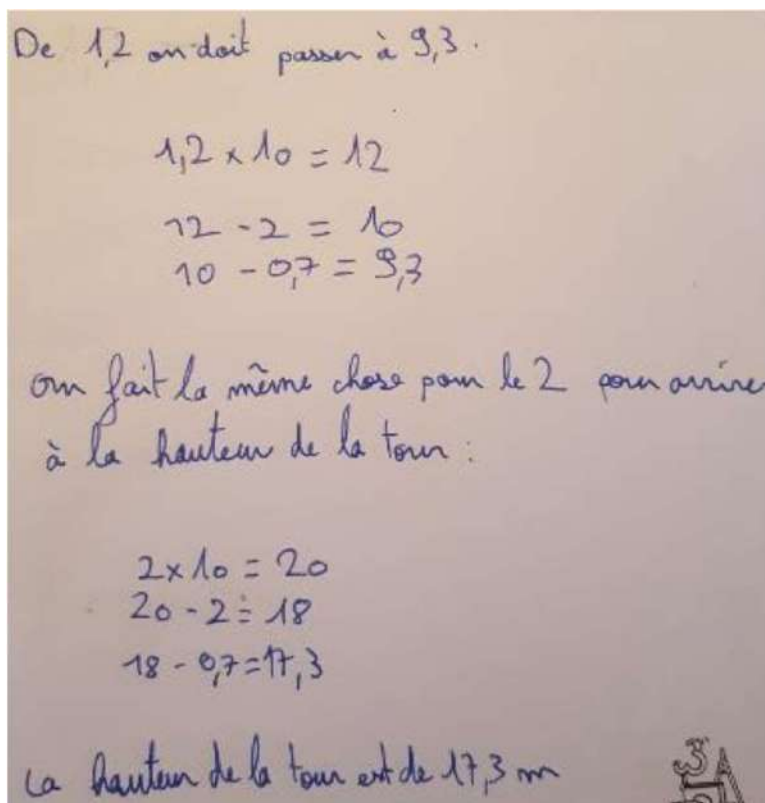 De 1,2 on doit passer à 9,3.
1,2 × 10 = 12
12 - 2 = 10
10 - 0,7 = 9,3
on fait la même chose pour le 2 pour arriver
à la hauteur de la tour :
2 × 10 = 20
20 - 2 = 18
18 - 0,7 = 17,3
La hauteur de la tour est de 17,3 m